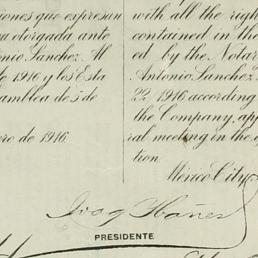 iones que expresan
a otorgada ante
onio Sanchez. Al
1916 y los Esta
amblea de 5 de
ero de 1916
with all the righ
contained in the
ed by the Notar
Antonio Sanchez.
22 1916 according
the Company, app
ral meeting in the
tion.
Mexico City
Ybañez
PRESIDENTE